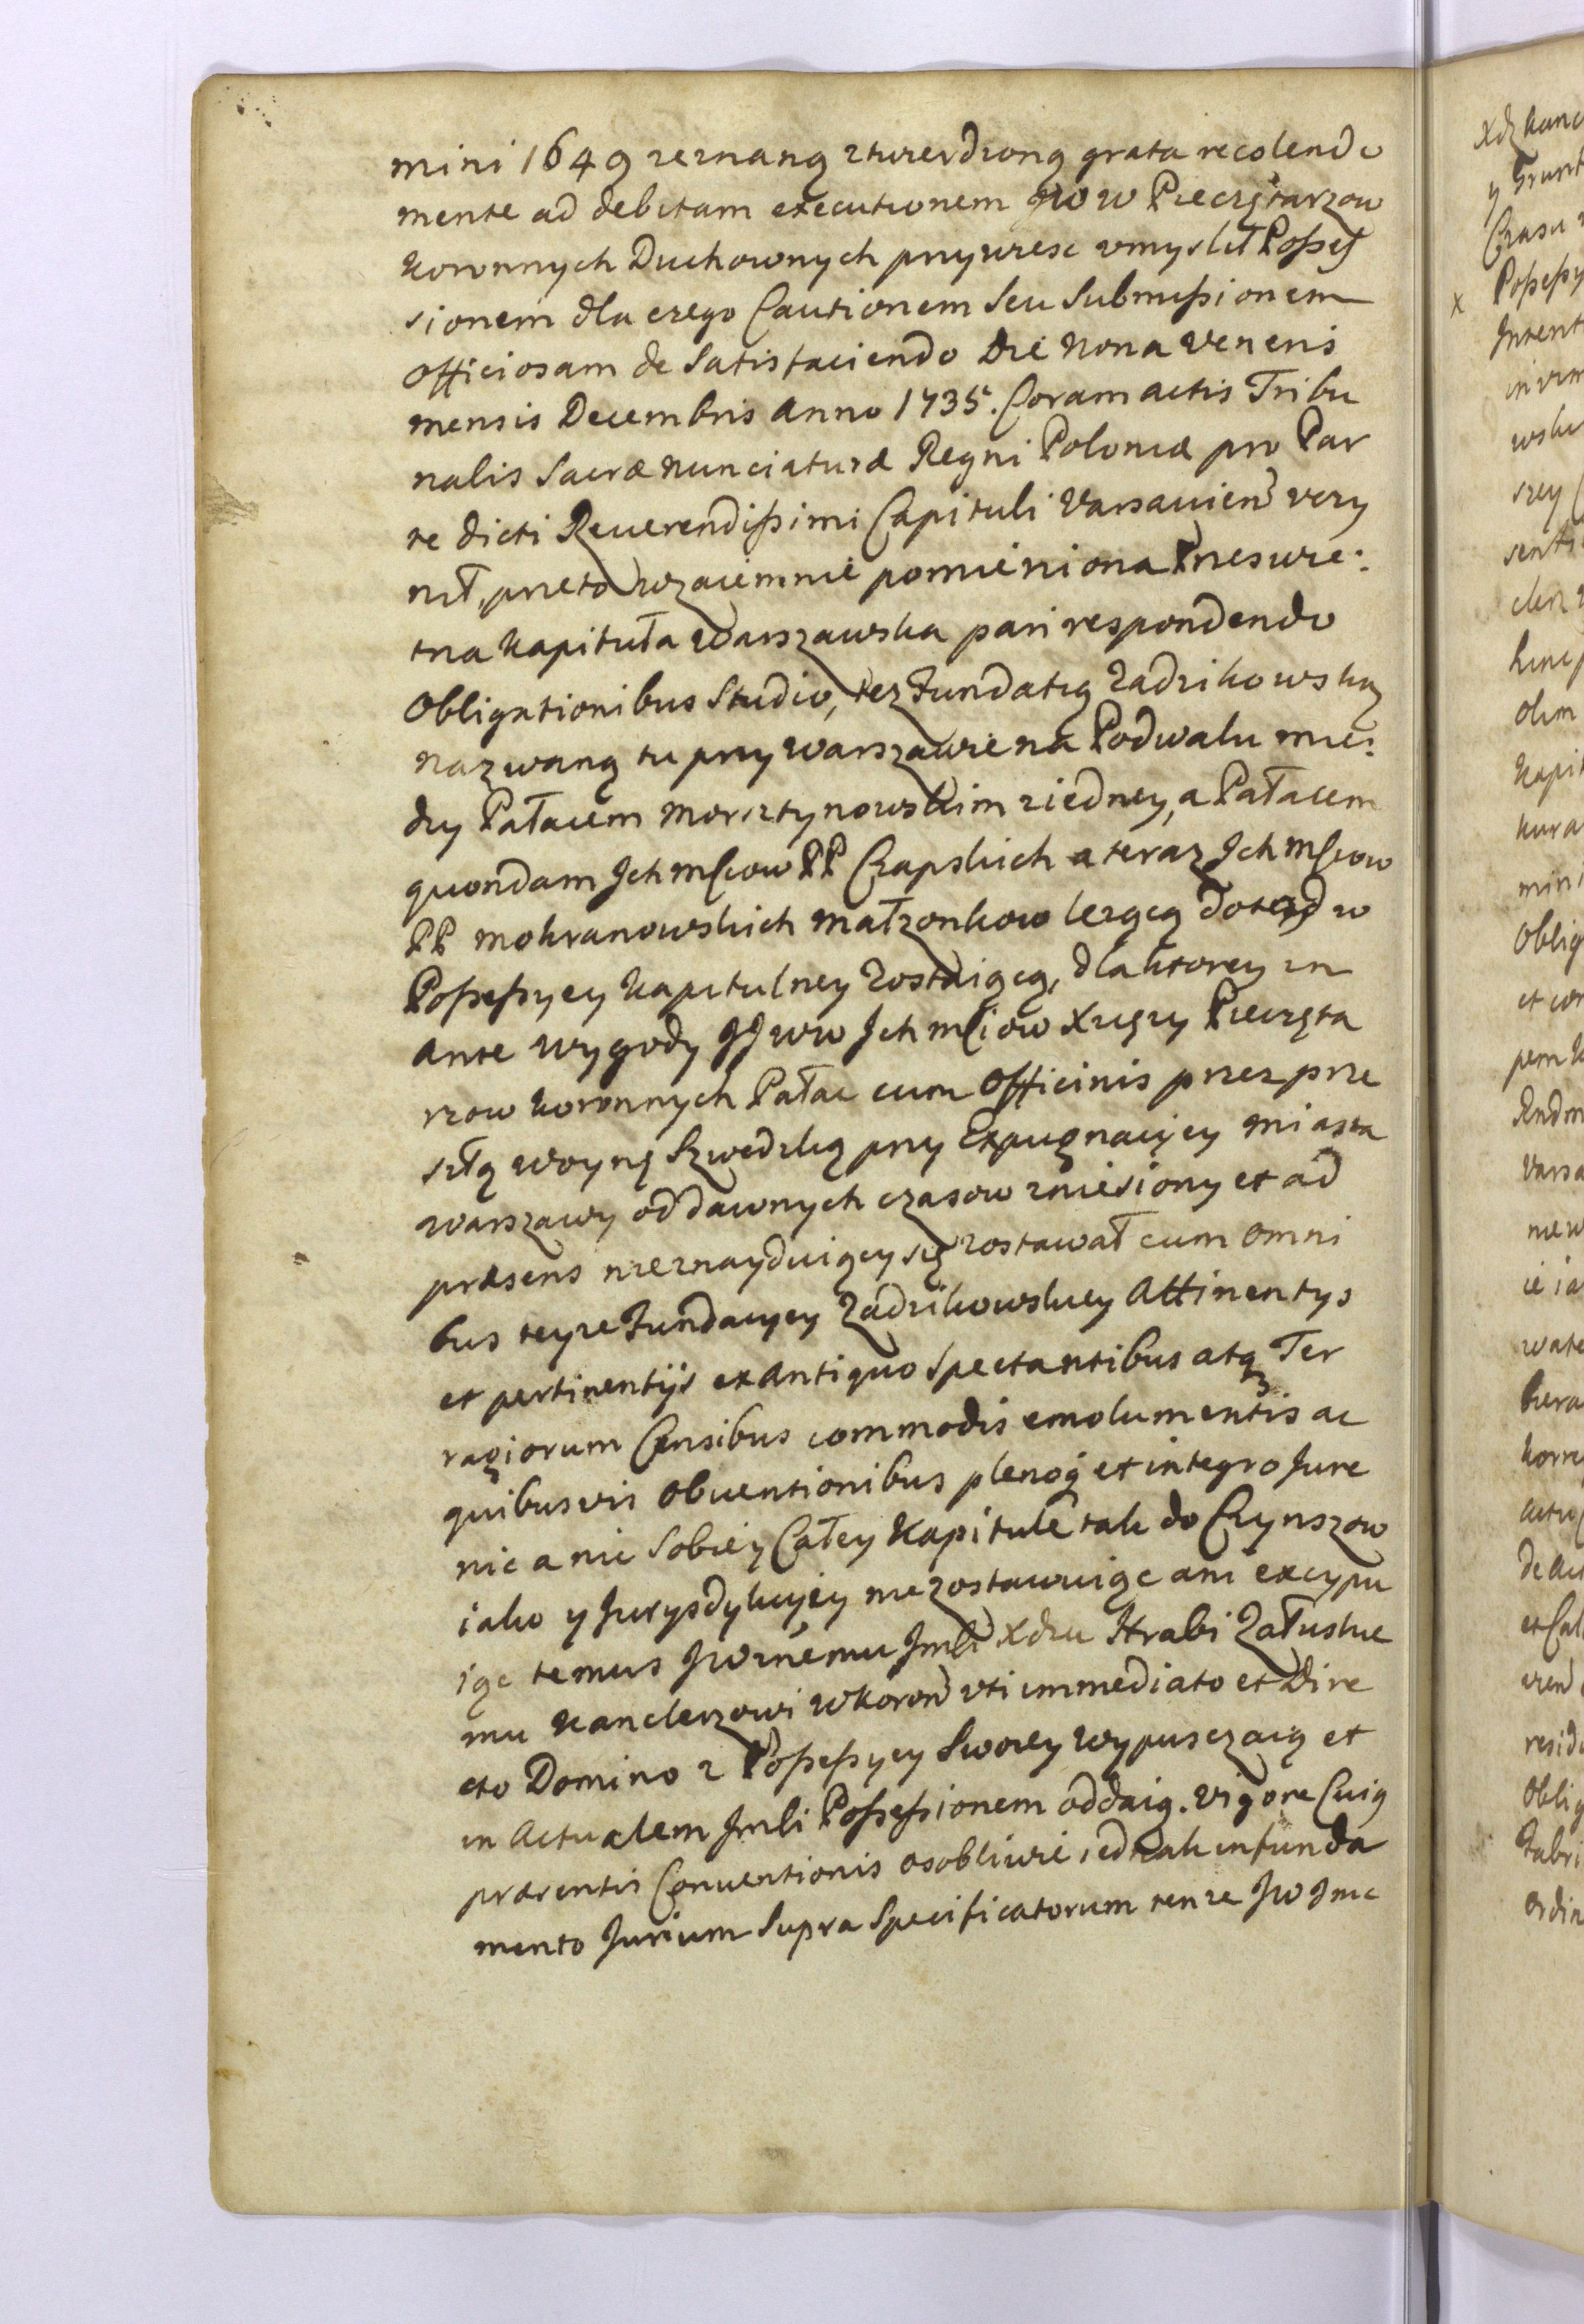 mini 1649 zeznaną ztwierdzoną grata recolendo
mente ad debitam executionem JWW Pieczętarzow
Koronnych Duchownych przywiesc vmyslił Posses
sionem dla czego Cautionem seu submissionem
officiosam de satisfaciendo Die Nona Veneris
mensis Decembris Anno 1735. Coram actis Tribu
nalis Sacræ Nunciaturæ Regni Poloniæ pro Par
te dicti Reuerendissimi Capituli Varsauien vczy
nił, przeto wzaiemnie pomieniona Przeswie:
tna Kapituła Warszawska pari respondendo
Obligationibus Studio, tez Fundatią Zadzikowską
nazwaną tu przy Warszawie na Podwalu mie:
dzy Pałacem Morsztynowskim ziedney, a Pałacem
quondam Jchmsciow PP Czapskich a teraz Jchmsciow
PP Mokranowskich małzonkow lezącą dotąd w
Possessyey Kapitulney zostaiącą, dla ktorey in
ante wygody JJWW Jchmsciow Xięzy Pieczęta
rzow Koronnych Pałac cum Officinis przez prze
szłą woynę Szwedzką przy Expugnacyey Miasta
Warszawy od dawnych czasow zniesiony et ad
præsens nieznayduiący się zostawał cum omni
bus teyze Fundacyey Zadzikowskiey Attinentys
et pertinentijs ex antiquo spectantibus atq Ter
ragiorum Censibus commodis emolumentis ac
quibusvis obuentionibus plenoq et integro Jure
nic a nic sobie y Całey Kapitule tak do Czynszow
iako y Jurysdykcyiey nie zostawuiąc ani excypu
iąc temus JWznemu Jmći Xdzu Hrabi Załuskie
mu Kanclerzowi WKoron vti immediato et Dire
cto Domino z Possessyey Swoiey wypusczaią et
in Actualem Jmći Possessionem oddaią. Vigore Cuiq
præsentis Conuentionis osobliwie iednak in funda
mento Jurium supra specificatorum tenze JW Jmc